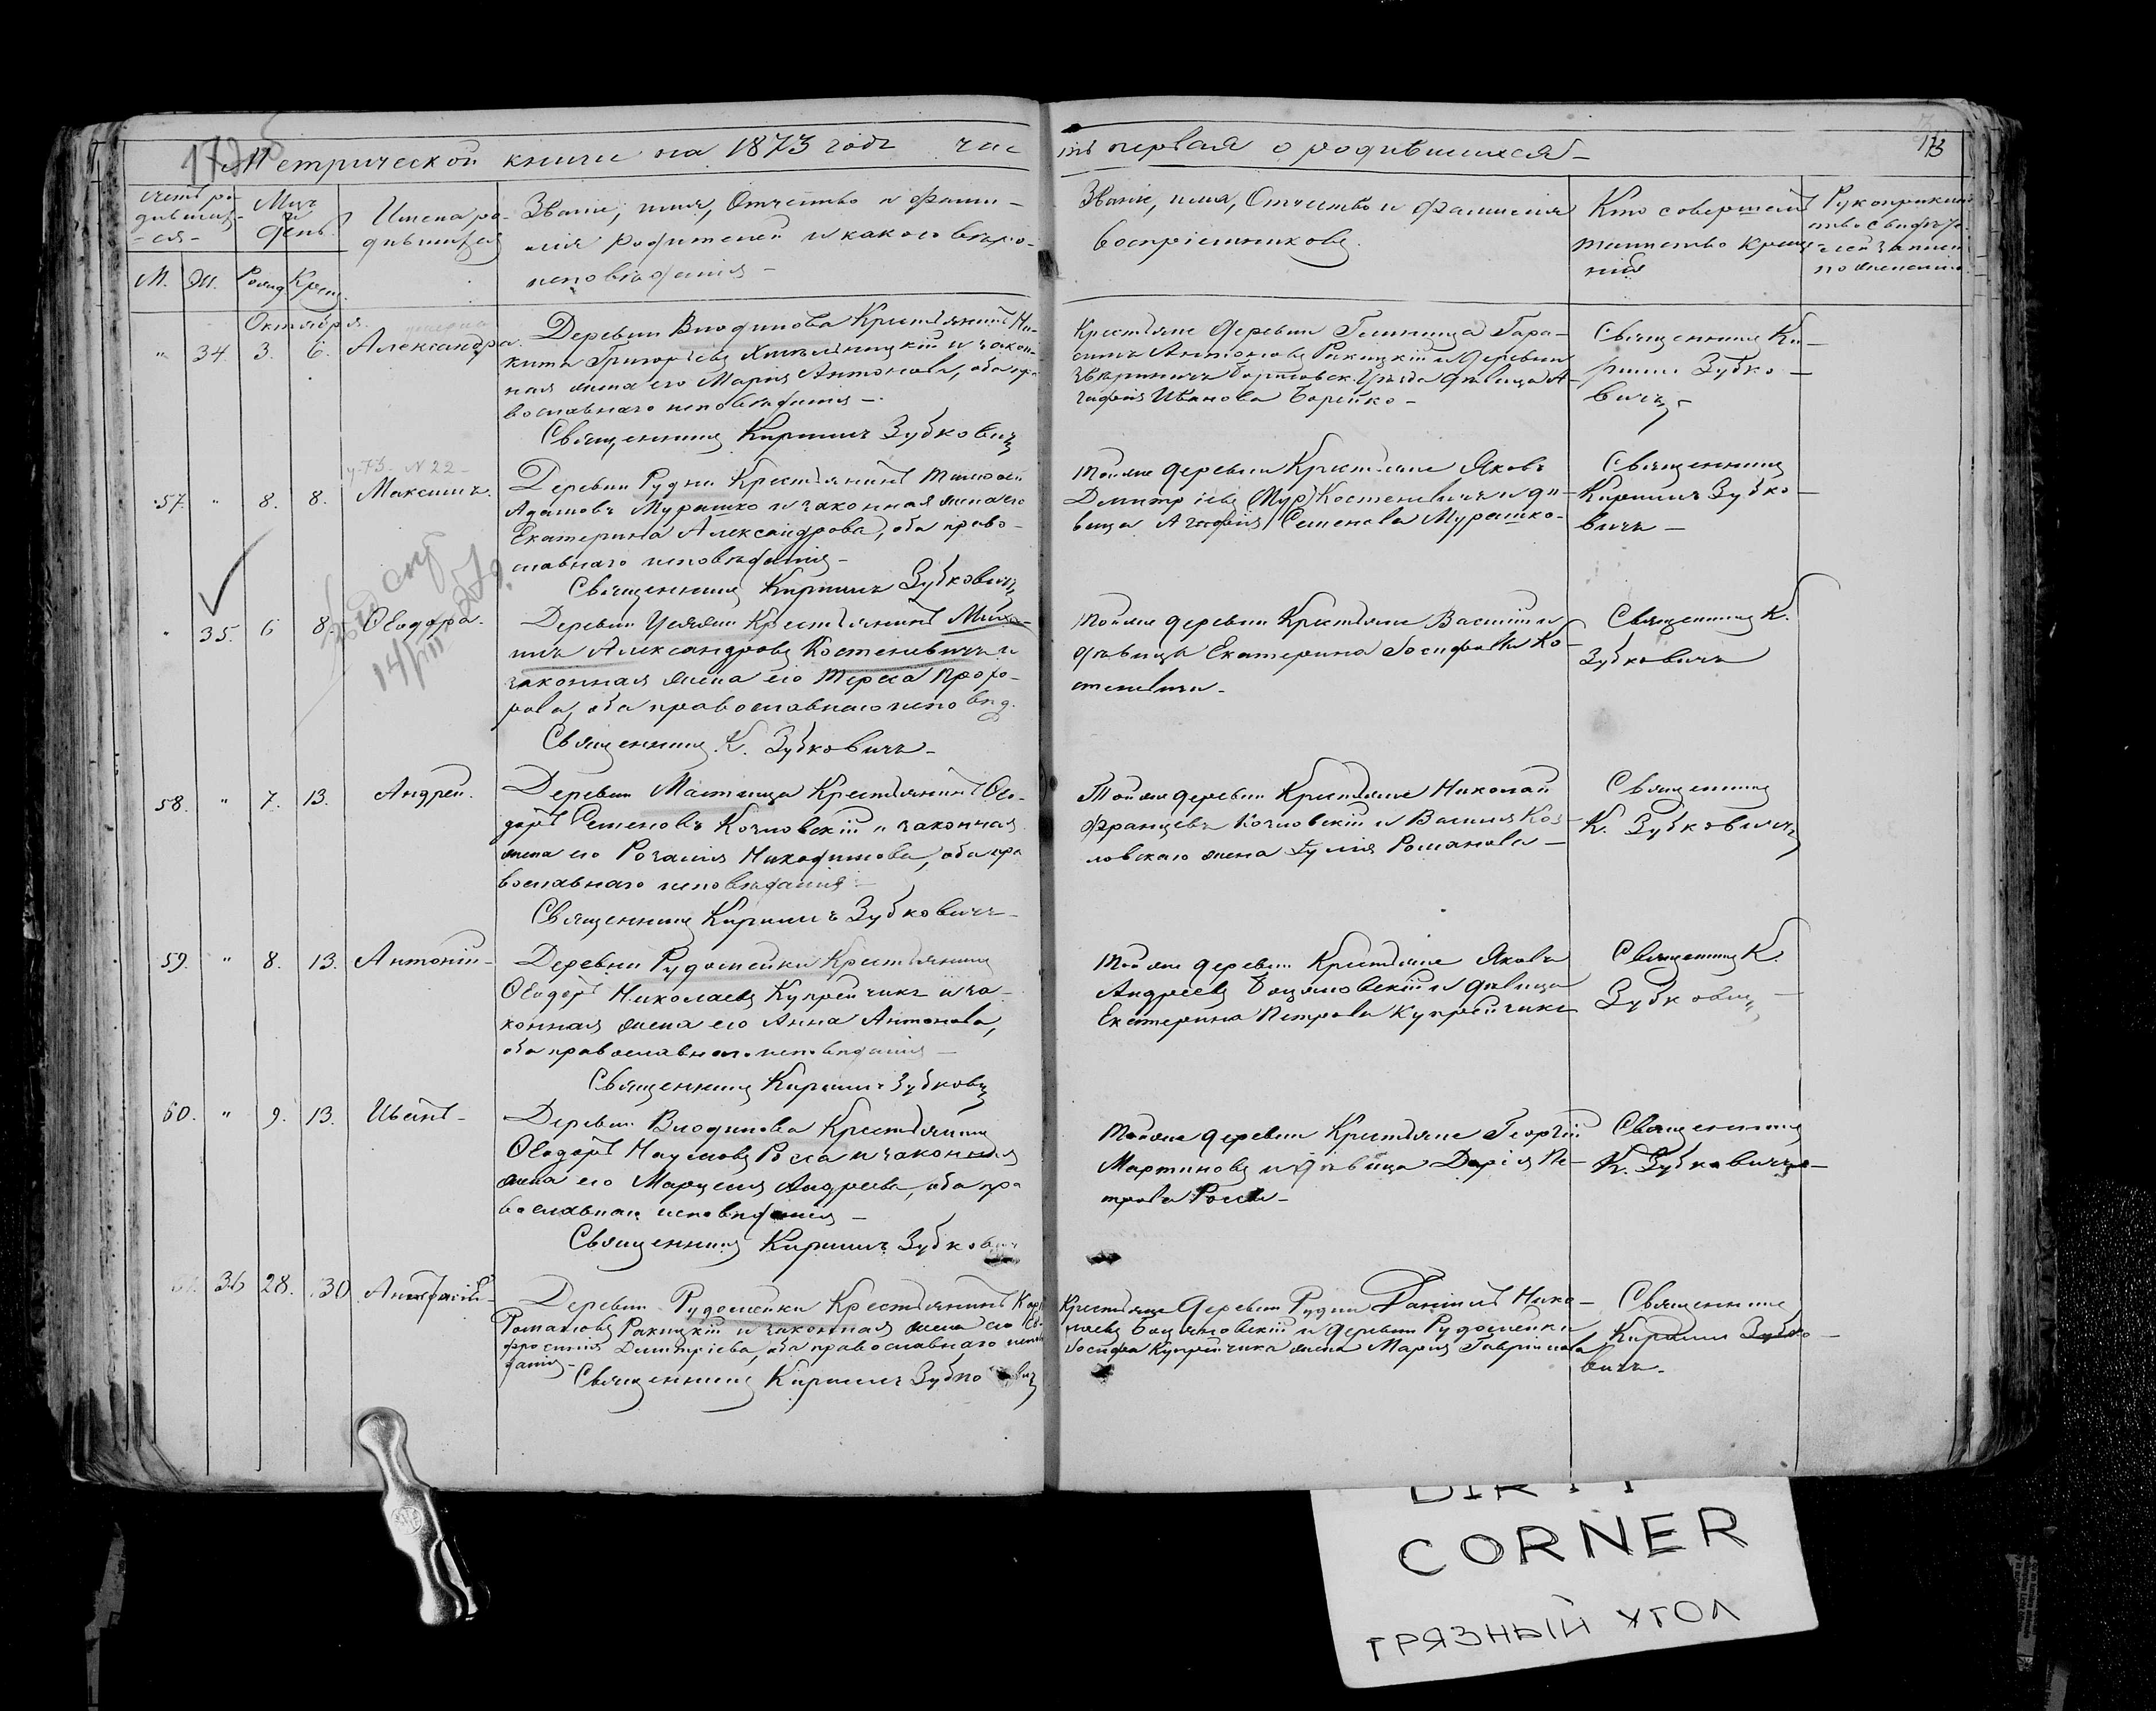 Метрической книги на 1873 годъ часть первая о родившихся
173
Счетъ ро-
дивших-
-ся-
Мцъ
и
день
Имена ро-
дившихся
Званіе, имя, Отчество и фами-
лія родителей и какого вѣро-
исповѣданія -
Званіе, имя, Отчество и фамилія
воспріемниковъ.
Кто совершалъ
таинство креще-
нія
Рукоприклад-
ство свидѣте-
лей записи
по желанію.
М. Ж. Рожд. Крещ.
Октября.
" 34. 3. 6. Александра.
Деревни Влодинова Крестьянинъ Ни-
кита Григорьевъ и закон-
ная жена его Марія Антонова, оба пра
вославнаго исповѣданія -
Священникъ Кириллъ Зубковичъ
Крестьяне деревни Гера-
симъ Антоновъ Ракицкій и деревни
Борисовск. Уѣзда дѣвица А-
гафія Иванова Борейко -
Священникъ Ки-
риллъ Зубко-
вичъ
N 22-
57. " 8. 8. Максимъ.
Деревни Рудни Крестьянинъ Тимофей
Адамовъ Мурашко и законная жена его
Екатерина Александрова, оба право-
славнаго исповѣданія -
Священникъ Кириллъ Зубковичъ
Тойже деревни Крестьяне Яковъ
Димитріевъ (Мур) Костеневичъ и дѣ-
вица Агафія Семенова Мурашко-
Священникъ
Кириллъ Зубко-
вичъ -
" 35. 6 8. Ѳеодора.
Деревни Крестьянинъ Миха-
илъ Александровъ Костеневичъ и
законная жена его Тереса Прохо-
рова, оба православнаго исповѣд.
Священникъ К. Зубковичъ -
Тойже деревни Крестьяне Василій и
дѣвица Екатерина Іосифовы Ко-
стеневичи -
Священникъ К.
Зубковичъ
58. " 7. 13. Андрей.
Деревни Мастица Крестьянинъ Ѳео-
доръ Семеновъ Козловскій и законная
жена его Розалія Никодимова, оба пра
вославнаго исповѣданія -
Священникъ Кириллъ Зубковичъ -
Тойже деревни Крестьяне Николай
Францевъ Козловскій и Василія Коз-
ловскаго жена Юлія Романова -
Священникъ
К. Зубковичъ
59. " 8. 13. Антоній-
Деревни Рудомейки Крестьянинъ
Ѳеодоръ Николаевъ Купрейчикъ и за-
конная жена его Анна Антонова,
оба православнаго исповѣданія -
Священникъ Кириллъ Зубковичъ
Тойже деревни Крестьяне Яковъ
Андреевъ Боцяновскій и дѣвица
Екатерина Петрова Купрейчикъ
Священникъ К.
Зубковичъ -
60. " 9. 13. Иванъ-
Деревни Влодинова Крестьянинъ
Ѳеодоръ Наумовъ и законная
жена его Марцеля Андреева, оба пра
вославнаго исповѣданія -
Священникъ Кириллъ Зубковичъ
Тойже деревни Крестьяне Георгій
Мартиновъ и дѣвица Дарія Пе-
трова
Священникъ
К. Зубковичъ -
36 28. 30
Деревни Рудомейки Крестьянинъ
Романовъ Ракицкій и законная жена его Ев-
фросинія Димитріева, оба православнаго исповѣ
данія - Священникъ Кириллъ Зубковичъ
Крестьяне деревни Рудни Даніилъ Нико-
лаевъ Боцяновскій и деревни Рудомейки
Іосифа Купрейчика жена Марія Гавриилова
Священникъ
Кириллъ Зубко-
вичъ.
DIRTY
CORNER
ГРЯЗНЫЙ УГОЛ